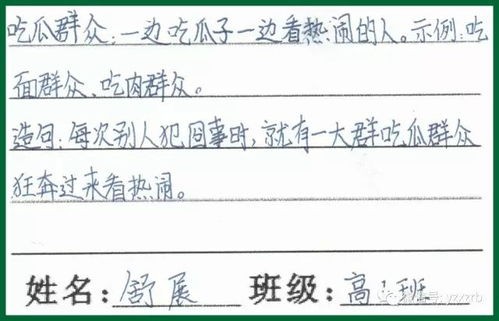 吃瓜群众：一边吃瓜子一边看热闹的人。示例：吃
面群众、吃肉群众。
造句：每次别人犯囧事时，就有一大群吃瓜群众
狂奔过来看热闹。
姓名：舒展 班级：高1班
yzyzrb